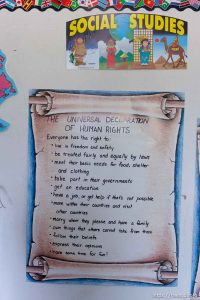 SOCIAL STUDIES
THE UNIVERSAL DECLARATION
OF HUMAN RIGHTS
Everyone has the right to:
• live in freedom and safety
• be treated fairly and equally by laws
• meet their basic needs for food, shelter
and clothing
• take part in their governments
• get an education
• have a job, or get help if that's not possible
• move within their countries and visit
other countries
• marry when they please and have a family
• own things that others cannot take from them
• follow their beliefs
• express their opinions
• have some time for fun!